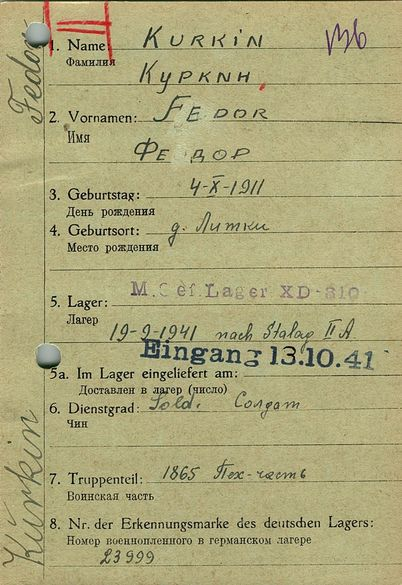 Fedor
1. Name: KURKIN
Фамилия
КУРКИН
2. Vornamen: FEDOR
Имя
ФЕОДОР
3. Geburtstag: 4-X-1911
День рождения
4. Geburtsort: д. Литки
Место рождения
M. Gef. Lager XD-310
5. Lager:
Лагер
19-9-1941 nach Stalag II A
Eingang 13.10.41
5a. Im Lager eingeliefert am:
Доставлен в лагер (число)
6. Dienstgrad: Sold. Солдат
Чин
Kurkin
7. Truppenteil: 1865 Пех-часть
Воинская часть
8. Nr. der Erkennungsmarke des deutschen Lagers:
Номер военнопленного в германском лагере
23999